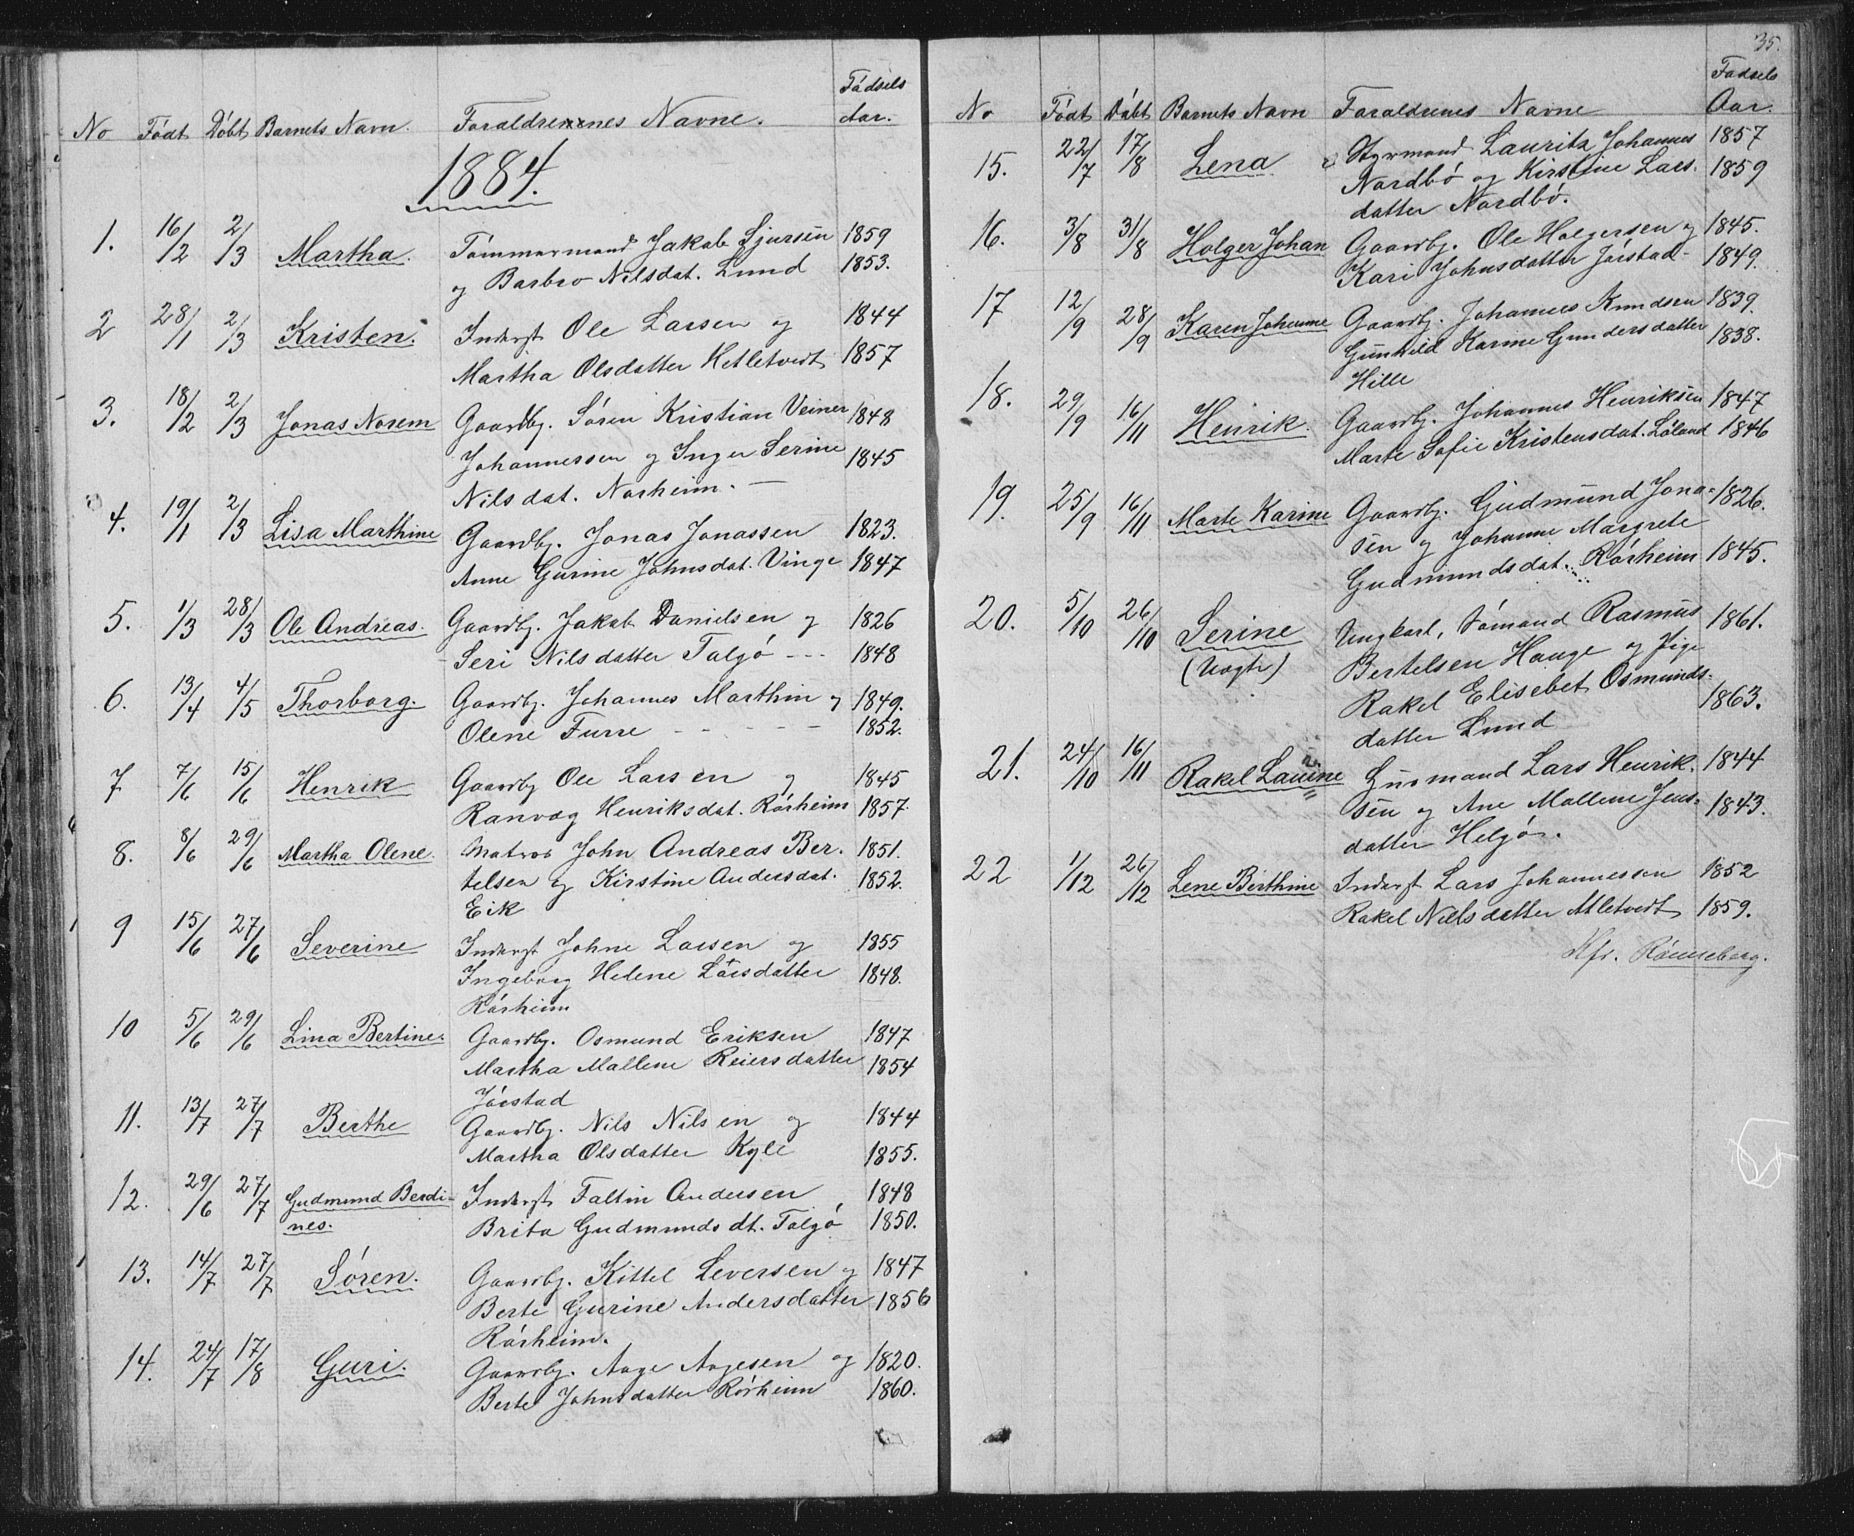 No Født Døbt Barnets Navn. Forældrenes Navne. Fødsels Aar.
1884.
1. 16/2 2/3 Martha. Tømmermand Jakob Sjursen 1859
og Barbro Nilsdat. Lund 1853.
2 28/1 2/3 Kristen. Inderst Ole Larsen og 1844
Martha Olsdatter Hetletvedt 1857
3. 18/2 2/3 Jonas Norem Gaardbg. Søren Kristian Veiner 1848
Johannessen og Inger Serine 1845
Nilsdat. Norheim. —
4. 19/1 2/3 Lisa Marthine Gaardbg. Jonas Jonassen 1823.
Anne Gurine Johnsdat. Vinge 1847
5. 1/3 28/3 Ole Andreas. Gaardbg. Jakob Danielsen og 1826
Seri Nilsdatter Talgø - - - 1848
6. 13/4 4/5 Thorborg. Gaardbg. Johannes Marthin og 1849.
Olene Furre - - - - 1852.
7 7/6 15/6 Henrik Gaardbg Ole Larsen og 1845
Ranvæg Henriksdat. Rørheim 1857.
8. 8/6 29/6 Martha Olene. Matros John Andreas Ber- 1851.
telsen og Kirstine Andersdat. 1852.
Eik
9 15/6 27/6 Severine Inderst Johne Larsen og 1855
Ingeborg Helene Larsdatter 1848.
Rørheim
10 5/6 29/6 Lina Bertine. Gaardbg. Osmund Eriksen 1847
Martha Mallene Reiersdatter 1854
Jørstad
11. 13/7 27/7 Berthe Gaardbg. Nils Nilsen og 1844
Martha Olsdatter Kyle 1855.
12. 29/6 27/7 Gudmund Berdi- Inderst Faltin Andersen 1848
nes. Brita Gudmundsdt. Talgø 1850.
13. 14/7 27/7 Søren. Gaardbg. Kittel Leversen og 1847
Berte Gurine Andersdatter 1856
Rørheim.
14. 24/7 17/8 Guri. Gaardbg. Aage Aagesen og 1820.
Berte Johnsdatter Rørheim 1860.
35.
No Født Døbt Barnets Navn Forældrenes Navne Fødsels Aar.
15. 22/7 17/8 Lena Styrmand Lauritz Johannes 1857
Nordbø og Kirstine Lars- 1859
datter Nordbø.
16. 3/8 31/8 Holger Johan Gaardbg. Ole Holgersen og 1845.
Kari Johnsdatter Jørstad 1849.
17 12/9 28/9 Karen Johanne Gaardbg. Johannes Knudsen 1839.
Gunhild Karine Gundersdatter 1838.
Hille
18. 29/9 16/11 Henrik. Gaardbg. Johannes Henriksen 1847
Marte Sofie Kristensdat. Løland 1846
19. 25/9 16/11 Marte Karine Gaardbg. Gudmund Jona- 1826.
sen og Johanne Margrete
Gudmundsdat. Rørheim 1845.
20. 5/10 26/10 Serine Ungkarl, Sømand Rasmus 1861.
(Uægte) Bertelsen Hauge og Pige
Rakel Elisebet Osmunds- 1863.
datter Lund
21. 24/10 16/11 Rakel Laurine Husmand Lars Henrik- 1844
sen og Ane Mallene Jens- 1843.
datter Helgø.
22 1/12 26/12 Lene Berthine Inderst Lars Johannessen 1852
Rakel Nielsdatter Atletvedt 1859.
Kfr. Rønneberg.